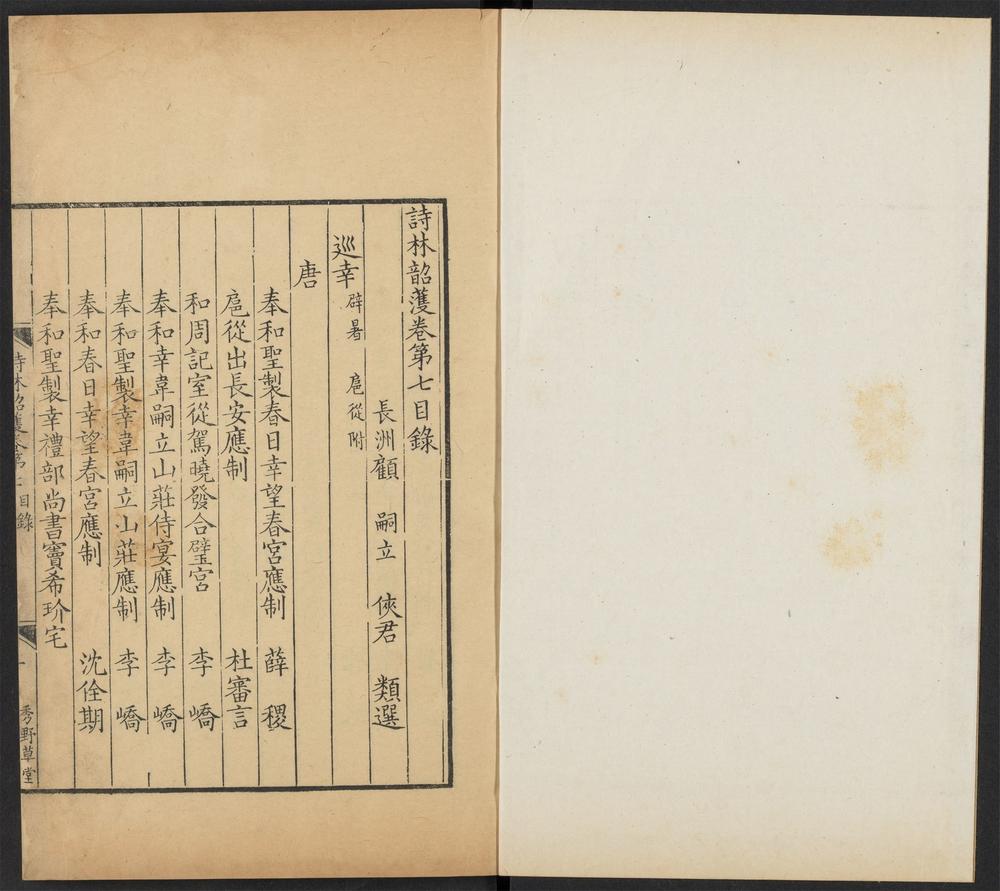 詩林韶濩卷第七目錄
長洲顧 嗣立 俠君 類選
巡幸 辟暑 扈從附
唐
奉和聖製春日幸望春宮應制 薛稷
扈從出長安應制 杜審言
和周記室從駕曉發合璧宮 李嶠
奉和幸韋嗣立山莊侍宴應制 李嶠
奉和聖製幸韋嗣立山莊應制 李嶠
奉和春日幸望春宮應制 沈佺期
奉和聖製幸禮部尚書竇希玠宅
詩林韶濩卷第七目錄 一 秀野草堂